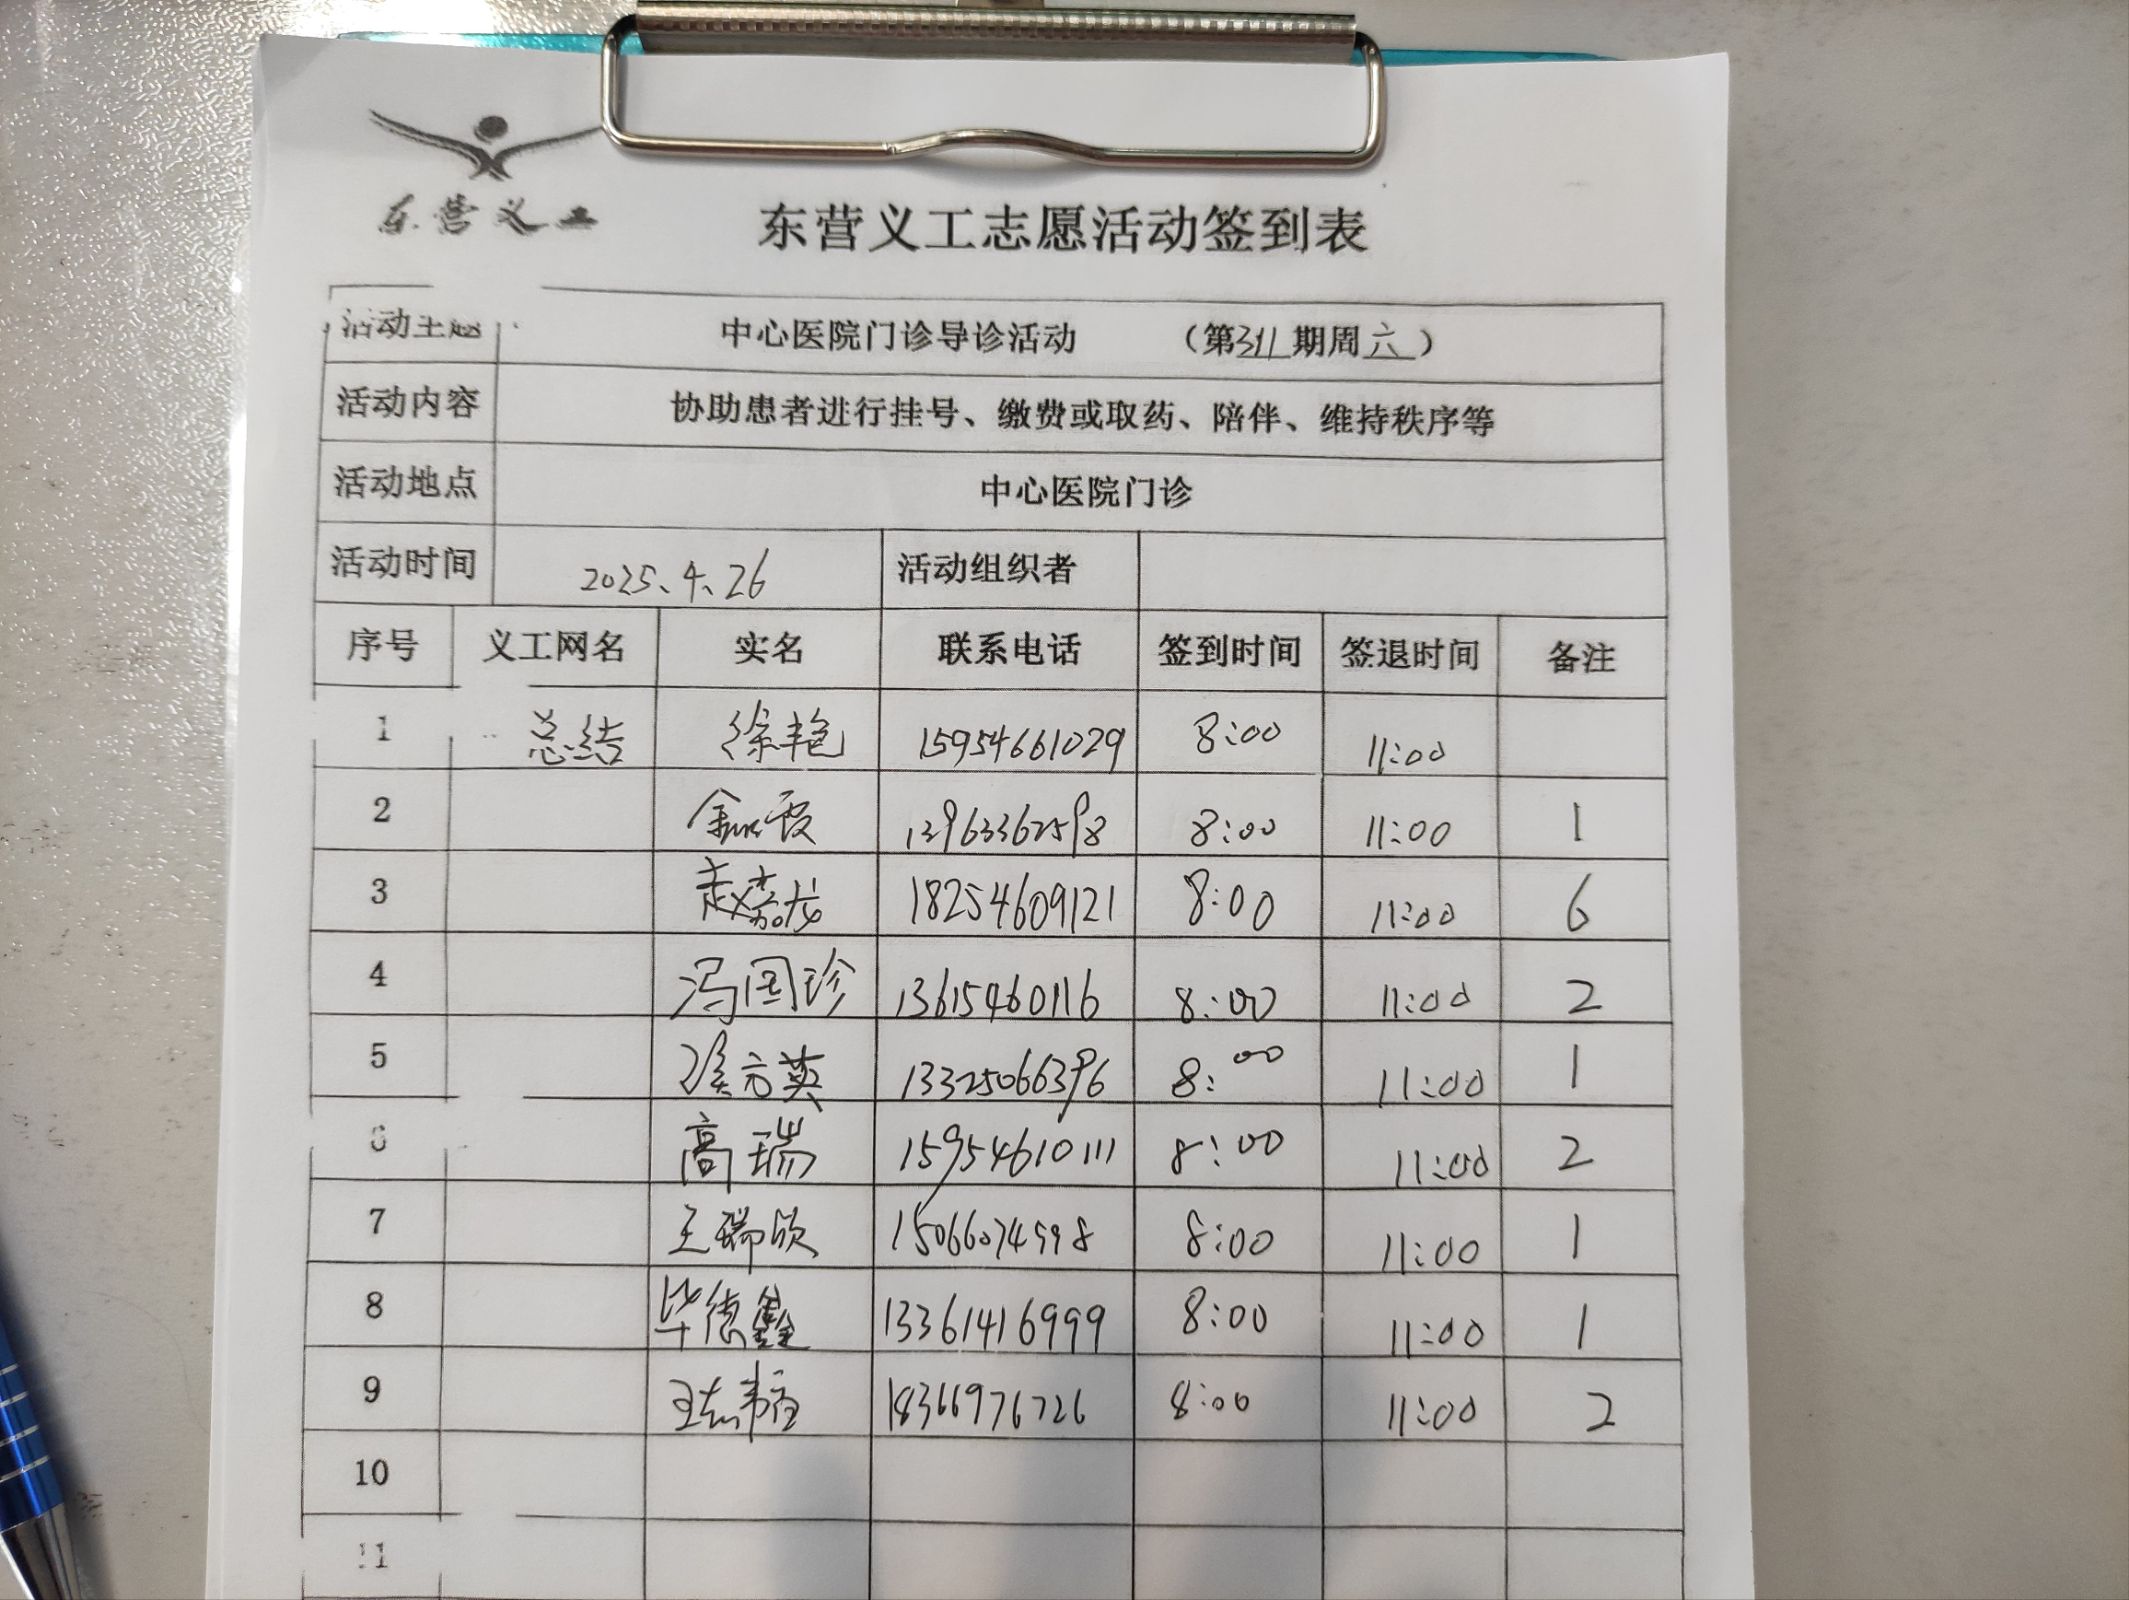 东营义工
东营义工志愿活动签到表
活动主题 中心医院门诊导诊活动 （第311期周六）
活动内容 协助患者进行挂号、缴费或取药、陪伴、维持秩序等
活动地点 中心医院门诊
活动时间 2025.4.26 活动组织者
序号 义工网名 实名 联系电话 签到时间 签退时间 备注
1 总结 徐艳 15954661029 8:00 11:00
2 13963362598 8:00 11:00 1
3 赵嘉龙 18254609121 8:00 11:00 6
4 冯国珍 13615460116 8:00 11:00 2
5 13325066396 8:00 11:00 1
6 高瑞 15954610111 8:00 11:00 2
7 王瑞欣 15066074598 8:00 11:00 1
8 毕德鑫 13361416999 8:00 11:00 1
9 18366976726 8:00 11:00 2
10
11